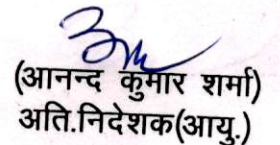 (आनन्द कुमार शर्मा)
अति.निदेशक(आयु.)